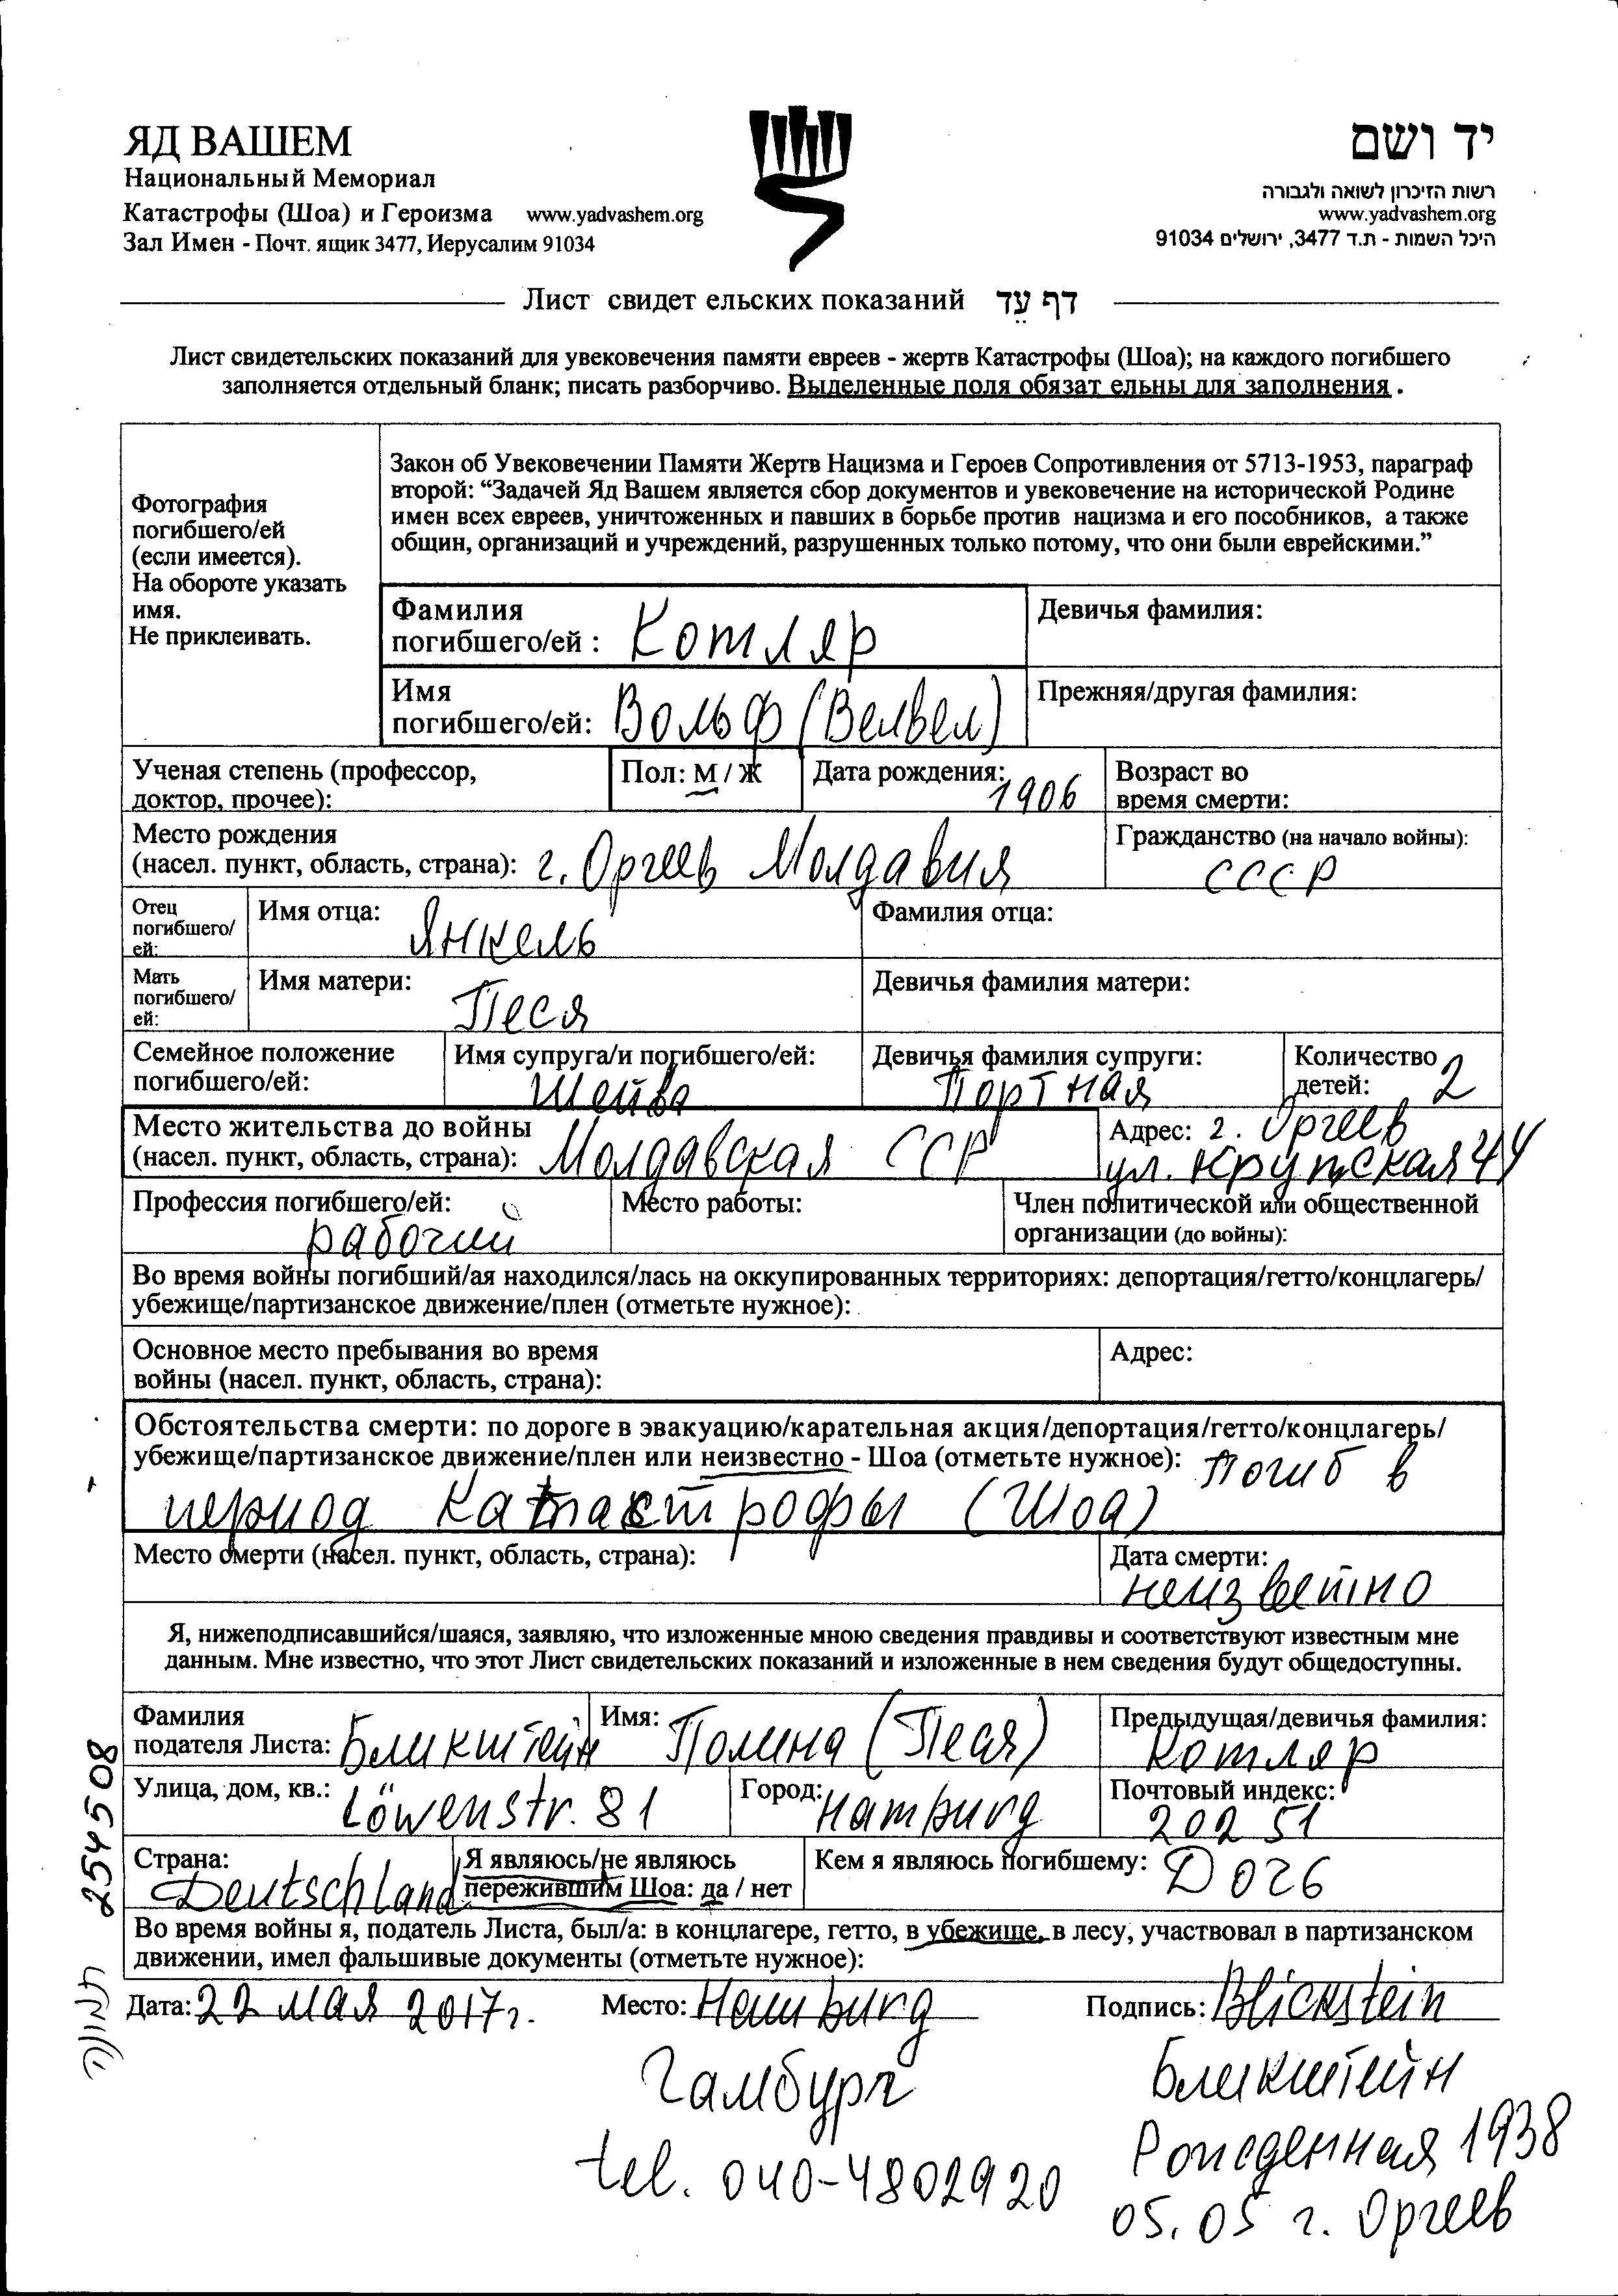 ЯД ВАШЕМ
Национальный Мемориал
Катастрофы (Шоа) и Героизма www.yadvashem.org
Зал Имен - Почт. ящик 3477, Иерусалим 91034
יד ושם
רשות הזיכרון לשואה ולגבורה
www.yadvashem.org
היכל השמות - ת.ד 3477, ירושלים 91034
Лист свидет ельских показаний דף עֵד
Лист свидетельских показаний для увековечения памяти евреев - жертв Катастрофы (Шоа); на каждого погибшего
заполняется отдельный бланк; писать разборчиво. Выделенные поля обязат ельны для заполнения .
Фотография
погибшего/ей
(если имеется).
На обороте указать
имя.
Не приклеивать.
Закон об Увековечении Памяти Жертв Нацизма и Героев Сопротивления от 5713-1953, параграф
второй: “Задачей Яд Вашем является сбор документов и увековечение на исторической Родине
имен всех евреев, уничтоженных и павших в борьбе против нацизма и его пособников, а также
общин, организаций и учреждений, разрушенных только потому, что они были еврейскими.”
Фамилия
погибшего/ей : Котляр
Девичья фамилия:
Имя
погибшего/ей: Вольф (Велвел)
Прежняя/другая фамилия:
Ученая степень (профессор,
доктор, прочее):
Пол: М / Ж
Дата рождения: 1906
Возраст во
время смерти:
Место рождения
(насел. пункт, область, страна): г. Оргеев Молдавия
Гражданство (на начало войны):
СССР
Отец
погибшего/
ей:
Имя отца: Янкель
Фамилия отца:
Мать
погибшего/
ей:
Имя матери: Песя
Девичья фамилия матери:
Семейное положение
погибшего/ей:
Имя супруга/и погибшего/ей:
Шейва
Девичья фамилия супруги:
Портная
Количество
детей: 2
Место жительства до войны
(насел. пункт, область, страна): Молдавская ССР
Адрес: г. Оргеев
ул. Крупская 44
Профессия погибшего/ей:
рабочий
Место работы:
Член политической или общественной
организации (до войны):
Во время войны погибший/ая находился/лась на оккупированных территориях: депортация/гетто/концлагерь/
убежище/партизанское движение/плен (отметьте нужное):
Основное место пребывания во время
войны (насел. пункт, область, страна):
Адрес:
Обстоятельства смерти: по дороге в эвакуацию/карательная акция/депортация/гетто/концлагерь/
убежище/партизанское движение/плен или неизвестно - Шоа (отметьте нужное): Погиб в
период Катастрофы (Шоа)
Место смерти (насел. пункт, область, страна):
Дата смерти:
неизвестно
Я, нижеподписавшийся/шаяся, заявляю, что изложенные мною сведения правдивы и соответствуют известным мне
данным. Мне известно, что этот Лист свидетельских показаний и изложенные в нем сведения будут общедоступны.
Фамилия
подателя Листа: Бликштейн
Имя: Полина (Песя)
Предыдущая/девичья фамилия:
Котляр
Улица, дом, кв.: Löwenstr. 81
Город: Hamburg
Почтовый индекс:
20251
Страна:
Deutschland
Я являюсь/не являюсь
пережившим Шоа: да / нет
Кем я являюсь погибшему: Дочь
Во время войны я, податель Листа, был/а: в концлагере, гетто, в убежище, в лесу, участвовал в партизанском
движении, имел фальшивые документы (отметьте нужное):
Дата: 22 мая 2017г. Место: Hamburg Подпись: Blickstein
Гамбург
tel. 040-4802920
Бликштейн
Рожденная 1938
05.05 г. Оргеев
254508